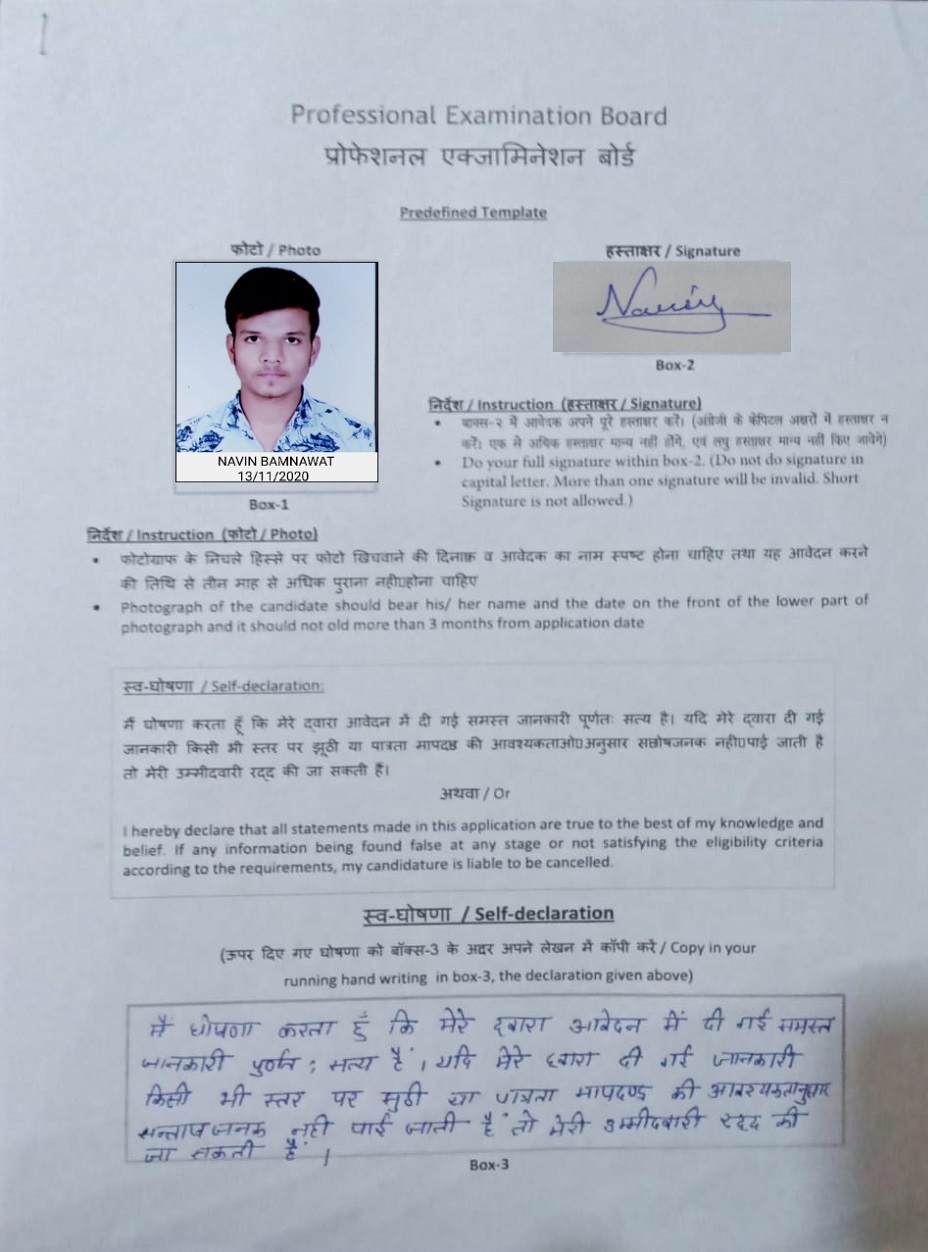 Professional Examination Board
प्रोफेशनल एक्जामिनेशन बोर्ड
Predefined Template
फोटो / Photo
हस्ताक्षर / Signature
Navin
NAVIN BAMNAWAT
13/11/2020
Box-1
Box-2
निर्देश / Instruction (हस्ताक्षर / Signature)
• बाक्स-२ में आवेदक अपने पूरे हस्ताक्षर करें। (अंग्रेजी के केपिटल अक्षरों में हस्ताक्षर न
करें। एक से अधिक हस्ताक्षर मान्य नहीं होंगे, एवं लघु हस्ताक्षर मान्य नहीं किए जावेंगे)
• Do your full signature within box-2. (Do not do signature in
capital letter. More than one signature will be invalid. Short
Signature is not allowed.)
निर्देश / Instruction (फोटो / Photo)
• फोटोग्राफ के निचले हिस्से पर फोटो खिचवाने की दिनाक्र व आवेदक का नाम स्पष्ट होना चाहिए तथा यह आवेदन करने
की तिथि से तीन माह से अधिक पुराना नही▯होना चाहिए
• Photograph of the candidate should bear his/ her name and the date on the front of the lower part of
photograph and it should not old more than 3 months from application date
स्व-घोषणा / Self-declaration:
मैं घोषणा करता हूँ कि मेरे द्वारा आवेदन में दी गई समस्त जानकारी पूर्णतः सत्य है। यदि मेरे द्वारा दी गई
जानकारी किसी भी स्तर पर झूठी या पात्रता मापदण्ड की आवश्यकताओ▯अनुसार सन्नोषजनक नही▯पाई जाती है
तो मेरी उम्मीदवारी रद्द की जा सकती हैं।
अथवा / Or
I hereby declare that all statements made in this application are true to the best of my knowledge and
belief. If any information being found false at any stage or not satisfying the eligibility criteria
according to the requirements, my candidature is liable to be cancelled.
स्व-घोषणा / Self-declaration
(ऊपर दिए गए घोषणा को बॉक्स-3 के अदर अपने लेखन में कॉपी करें / Copy in your
running hand writing in box-3, the declaration given above)
मैं घोषणा करता हूँ कि मेरे द्वारा आवेदन में दी गई समस्त
जानकारी पुर्णत : सत्य हैं । यदि मेरे द्वारा दी गई जानकारी
किसी भी स्तर पर झुठी या पात्रता मापदण्ड की आवश्यकतानुसार
सन्तोषजनक नही पाई जाती हैं तो मेरी उम्मीदवारी रद्द की
जा सकती हैं ।
Box-3